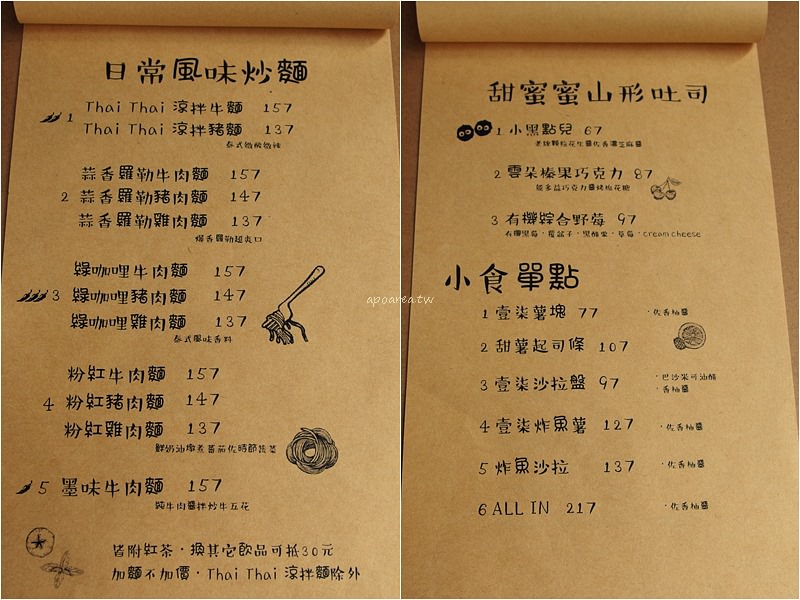 日常風味炒麵
1 Thai Thai 涼拌牛麵 157
Thai Thai 涼拌豬麵 137
泰式微酸微辣
蒜香羅勒牛肉麵 157
2 蒜香羅勒豬肉麵 147
蒜香羅勒雞肉麵 137
爆香羅勒超爽口
綠咖哩牛肉麵 157
3 綠咖哩豬肉麵 147
綠咖哩雞肉麵 137
泰式風味香料
粉紅牛肉麵 157
4 粉紅豬肉麵 147
粉紅雞肉麵 137
鮮奶油燉煮蕃茄佐時節蔬菜
5 墨味牛肉麵 157
純牛肉醬拌炒牛五花
皆附紅茶·換其它飲品可抵30元
加麵不加價·Thai Thai 涼拌麵除外
甜蜜蜜山形吐司
1 小黑點兒 67
美綠顆粒花生醬佐香濃芝麻醬
2 雲朵榛果巧克力 87
能多益巧克力醬烤棉花糖
3 有機綜合野莓 97
有機黑莓·覆盆子·黑醋栗·草莓·cream cheese
小食單點
1 壹柒薯塊 77 ·佐香柚醬
2 甜薯起司條 107
3 壹柒沙拉盤 97 ·巴沙米可油醋
·香柚醬
4 壹柒炸魚薯 127 ·佐香柚醬
5 炸魚沙拉 137 ·佐香柚醬
6 ALL IN 217 ·佐香柚醬
apoarea.tw